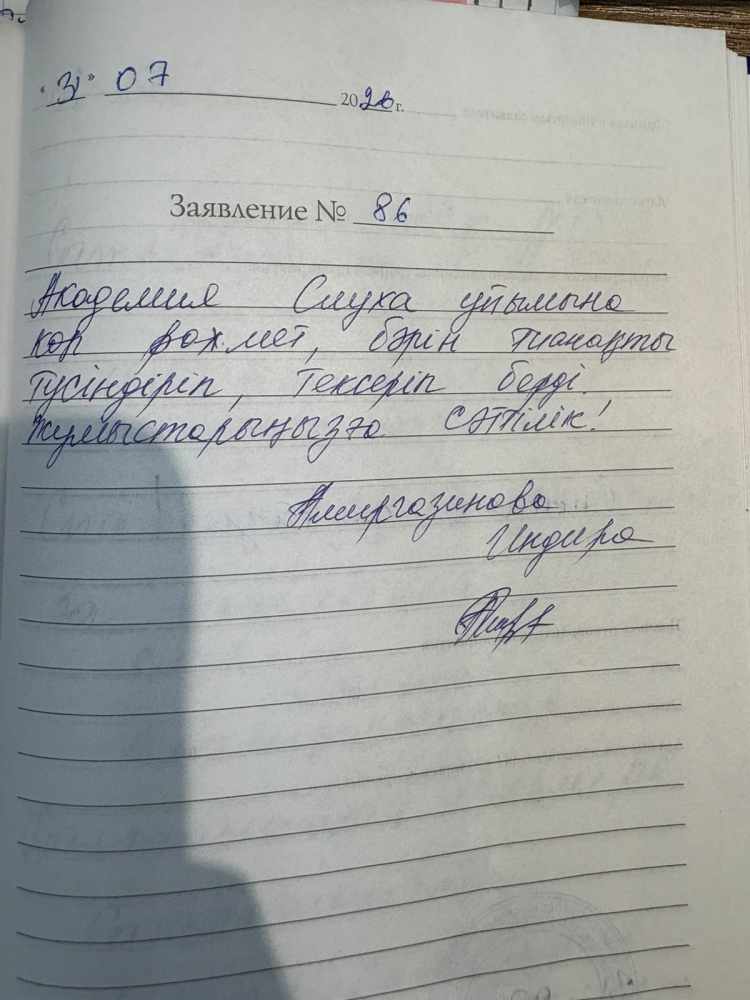 "31" 07 2026 г.
Заявление № 86
Академия Слуха ұйымына
көп рахмет, бәрін тиянақты
түсіндіріп, тексеріп берді.
Жұмыстарыңызға сәттілік!
Амиргазинова
Индира